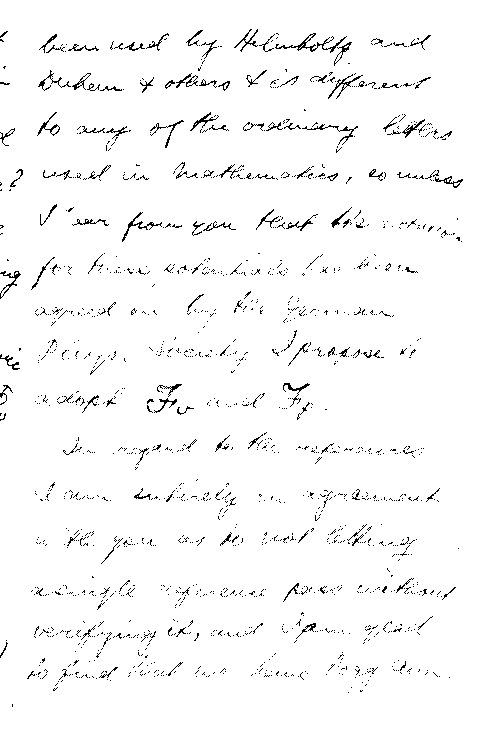 been used by Helmholtz and
Duhem & others & is different
to any of the ordinary letters
used in mathematics, so unless
I ear from you that this notation
for these potentials has been
agreed on by the German
Phys. Society I propose to
adopt Fv and Fp.
In regard to the references
I am entirely in agreement
with you as to not letting
a single reference pass without
verifying it, and I am glad
to find that we have Pogg Ann.